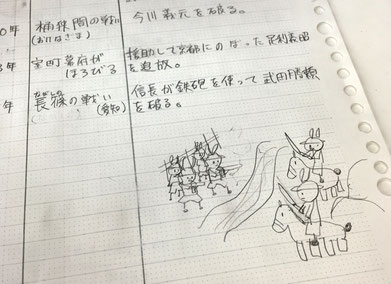 0年 桶狭間の戦い 今川義元を破る。
(おけはざま)
3年 室町幕府が 援助して京都にのぼった足利義昭
ほろびる を追放。
ながしの
年 長篠の戦い 信長が鉄砲を使って武田勝頼
(愛知) を破る。